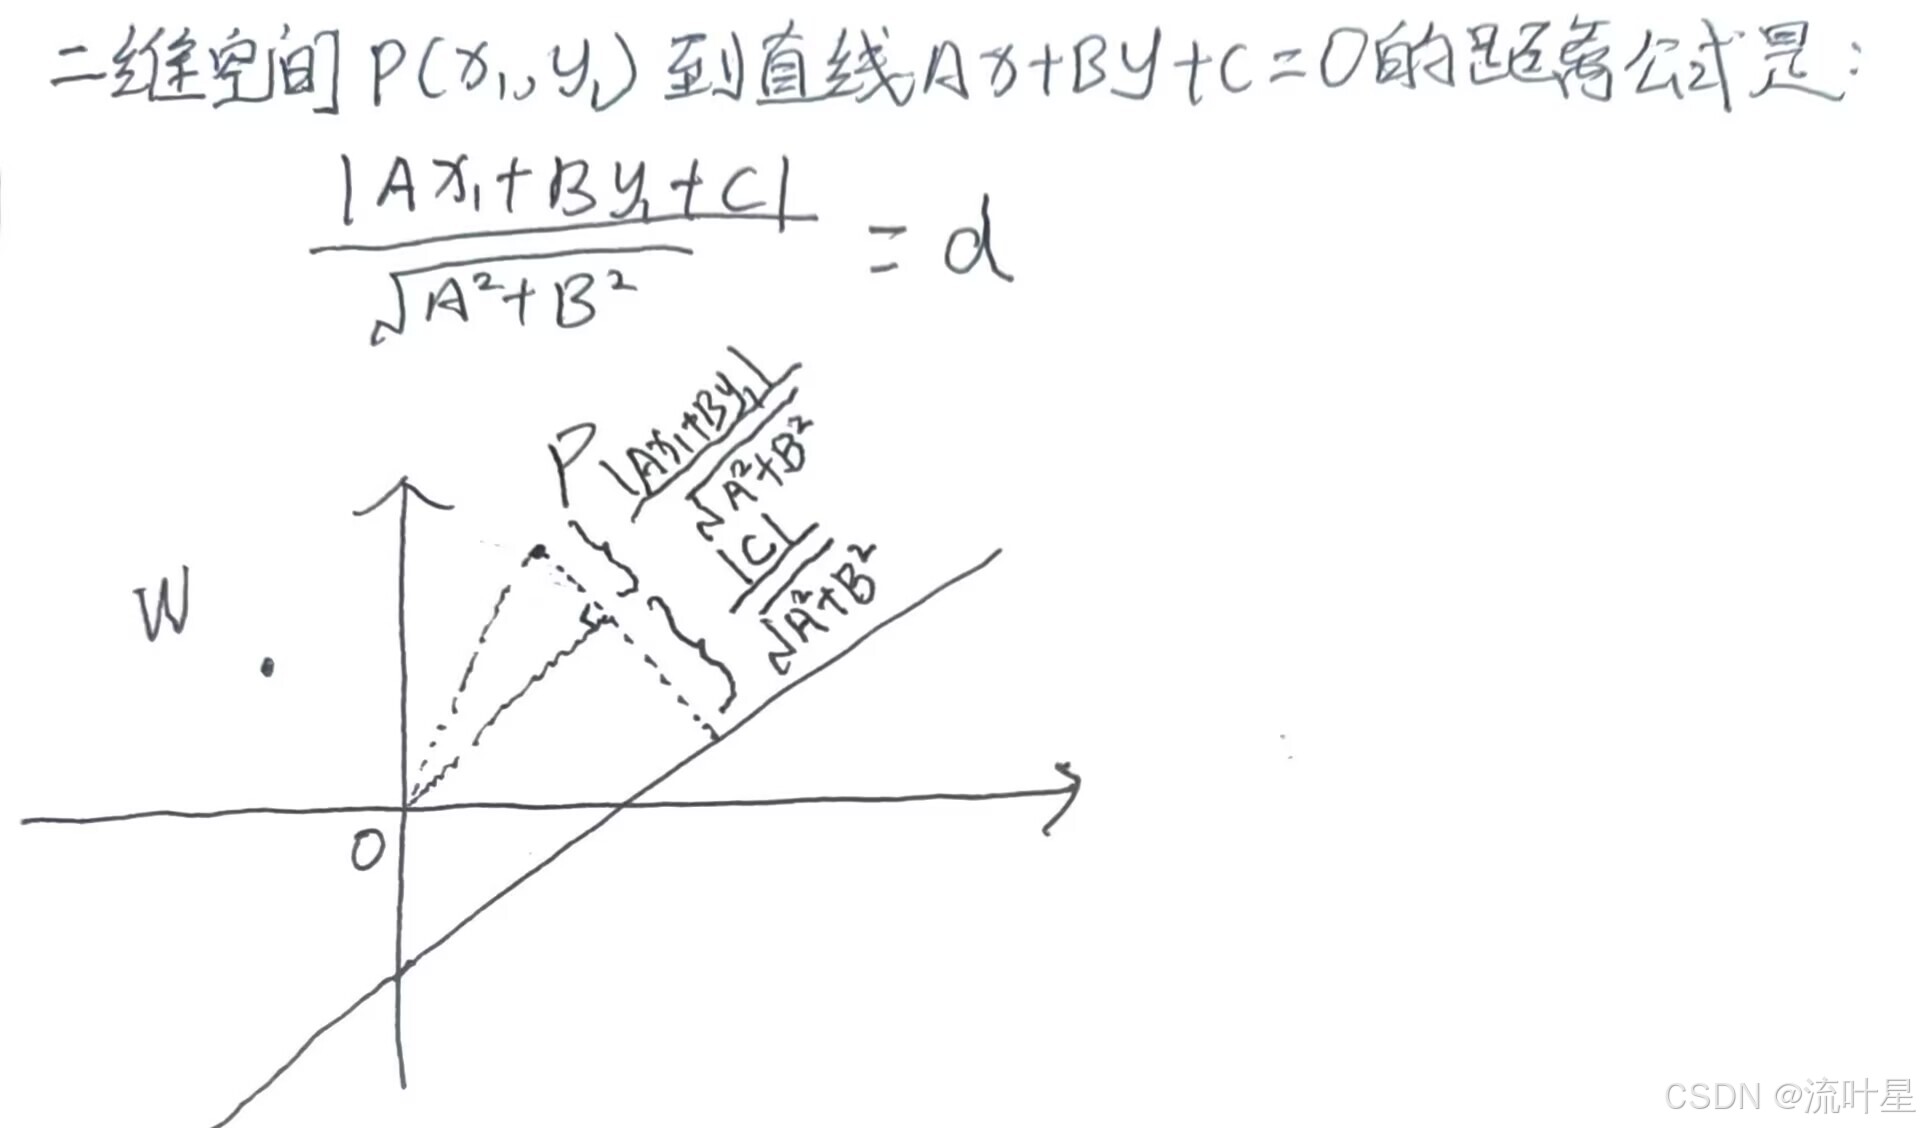 二维空间P(x₁,y₁)到直线Ax+By+C=0的距离公式是:
|Ax₁+By₁+C|
———— = d
√A²+B²
P
|Ax₁+By₁|
√A²+B²
|C|
√A²+B²
W
O
CSDN @流叶星